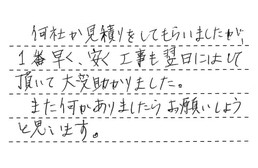 何社か見積りをしてもらいましたが、
1番早く、安く工事も翌日にはして
頂いて大変助かりました。
また何かありましたらお願いしよう
と思います。